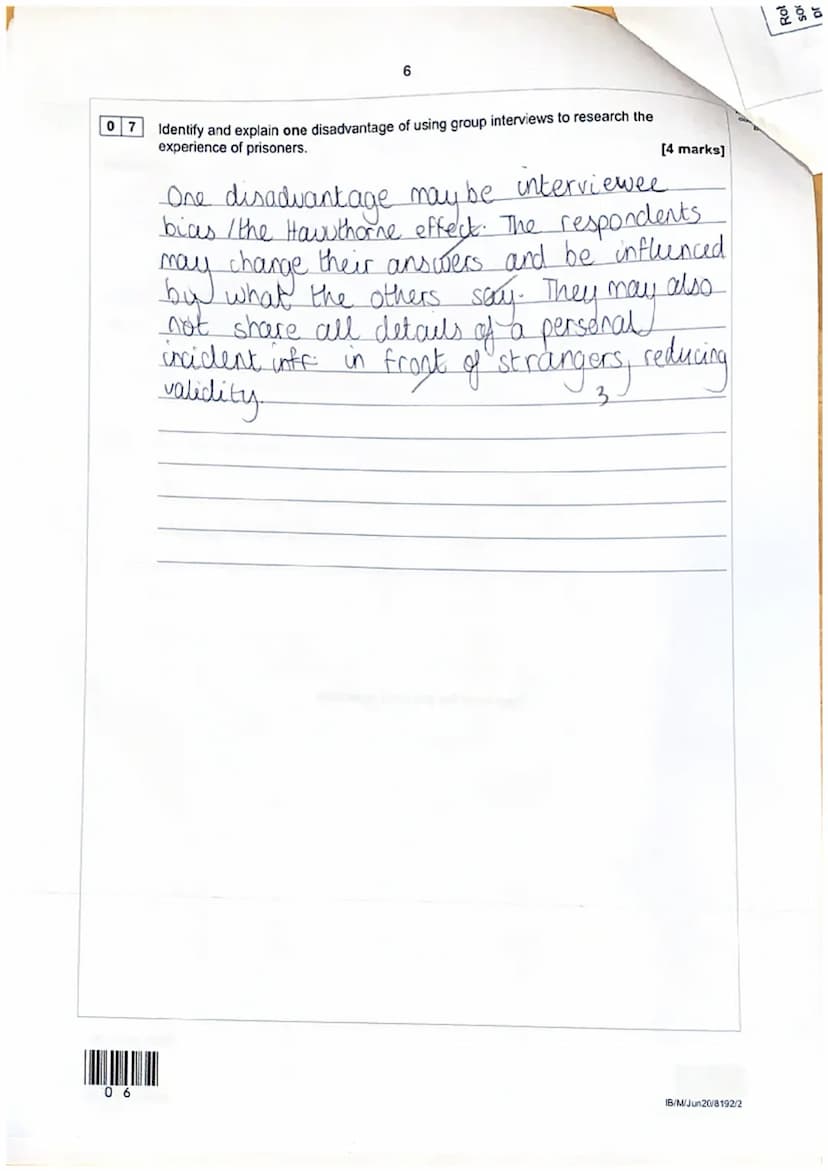 Rol
so
or
6
0 7 Identify and explain one disadvantage of using group interviews to research the
experience of prisoners.
[4 marks]
One disadvantage may be interviewee
bias / the Hawthorne effect. The respondents
may change their answers and be influnced
by what the others say. They may also
not share all details of a personal
incident in front of strangers, reducing
validity.
3
0 6
IB/M/Jun20/8192/2